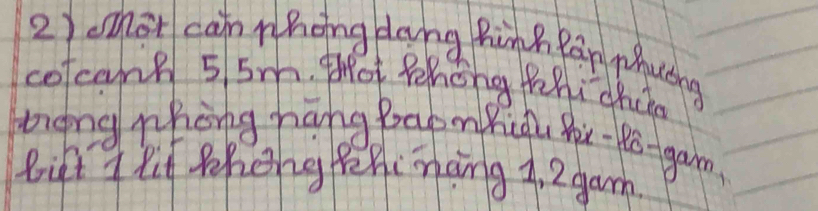 2) Một căn phòng dạng hình lập phương
có cạnh 5,5m. Hỏi không khí chứa
trong phòng nặng bao nhiêu ki-lô-gam,
biết 1 lít không khí nặng 1,2 gam.